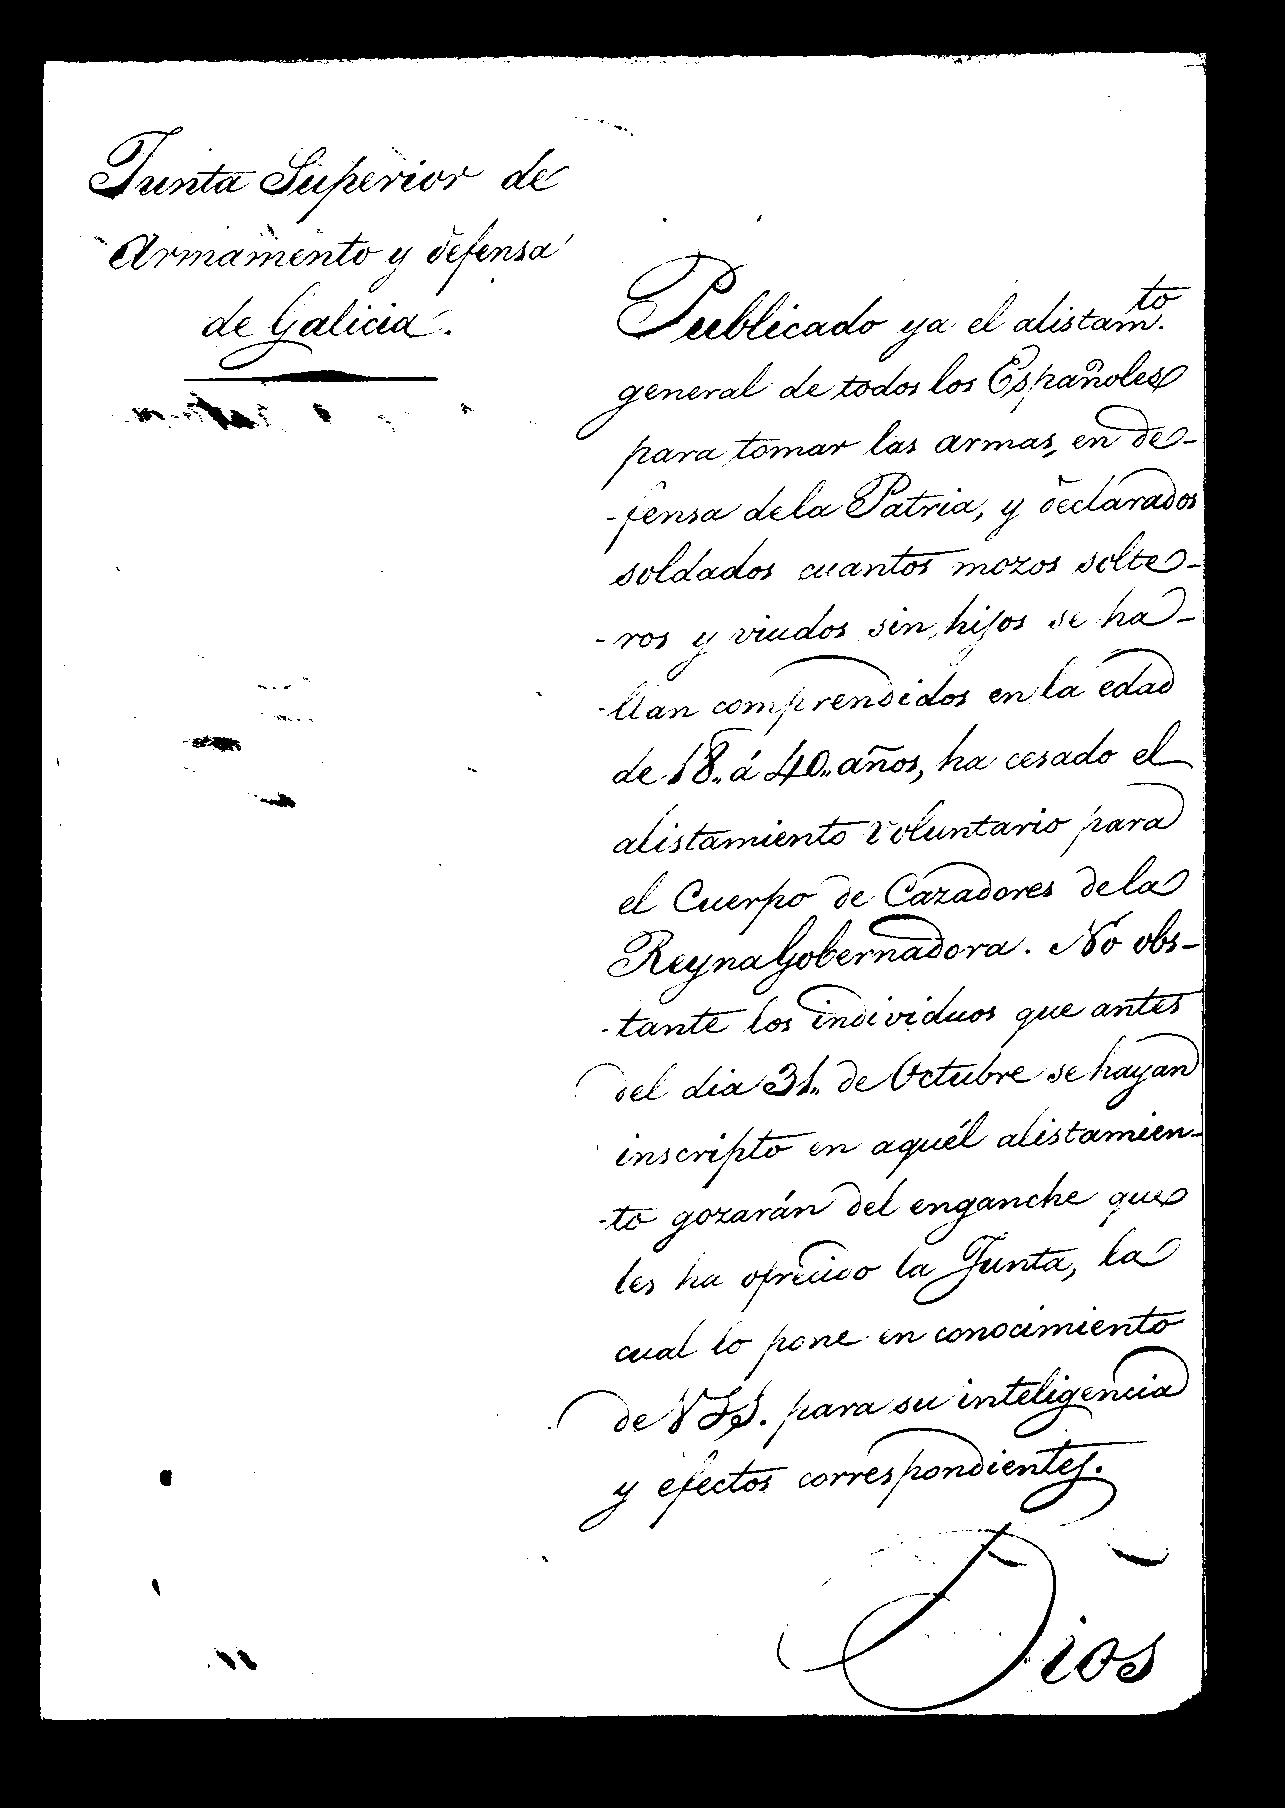 Junta Superior de
Armamento y defensa
de Galicia.
Publicado ya el alistamto.
general de todos los Españoles
para tomar las armas, en de-
-fensa dela Patria, y declarados
soldados cuantos mozos solte-
-ros y viudos sin hijos se ha-
-llan comprendidos en la edad
de 18.. á 40.. años, ha cesado el
alistamiento voluntario para
el Cuerpo de Cazadores dela
Reyna Gobernadora. No obs-
-tante los individuos que antes
del dia 31.. de Octubre se hayan
inscripto en aquél alistamien-
-to gozarán del enganche que
les ha ofrecido la Junta, la
cual lo pone en conocimiento
de VSS. para su inteligencia
y efectos correspondientes.
Dios